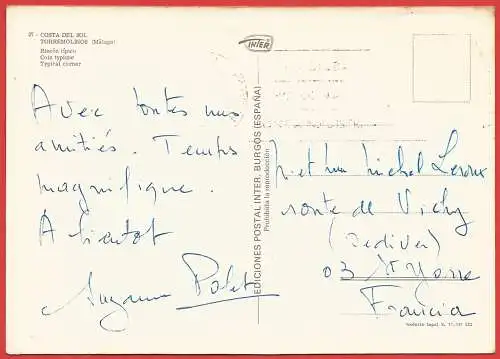 27 - COSTA DEL SOL
TORREMOLINOS (Málaga)
Rincón típico
Coin typique
Typical corner
INTER
Avec toutes nos
amitiés. Temps
magnifique.
A bientôt
Suzanne
EDICIONES POSTAL INTER. BURGOS (ESPAÑA)
Prohibida la reproducción
M et Mme Michel Leroux
route de Vichy
(Bediver)
03 St Yorre
Francia
Depósito legal B.